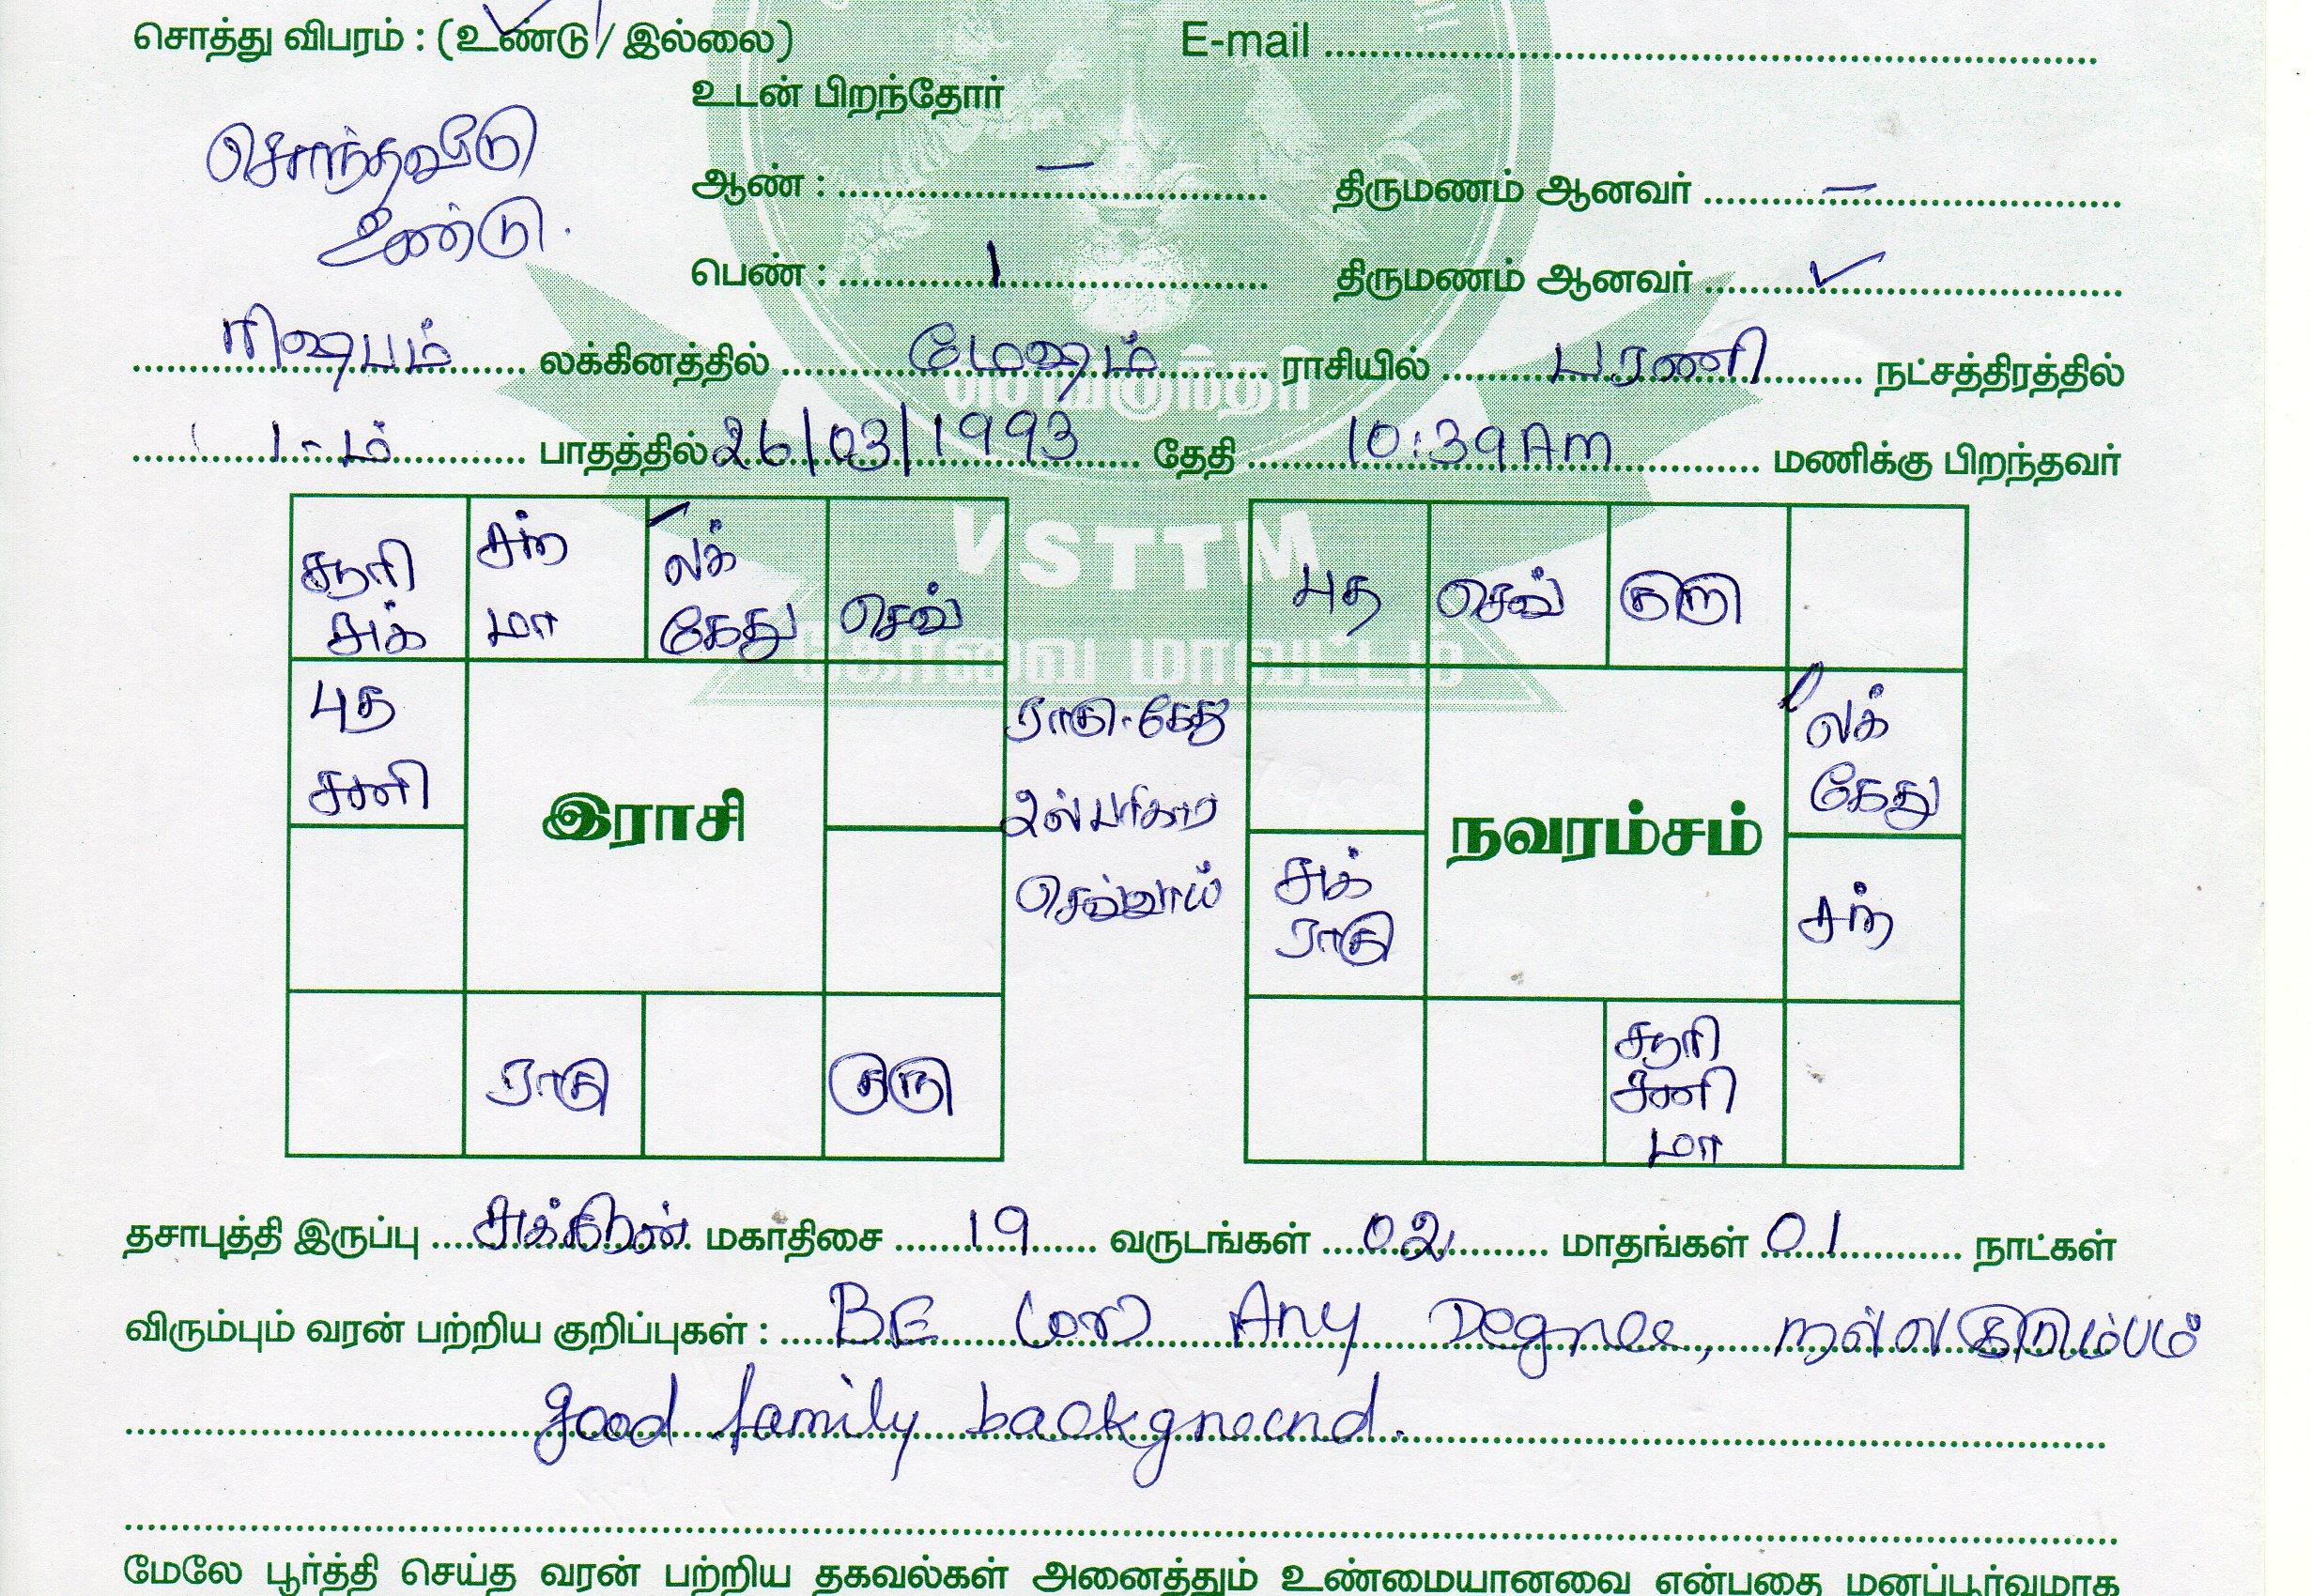 சொத்து விபரம் : (உண்டு / இல்லை) E-mail
உடன் பிறந்தோர்
சொந்தவீடு
உண்டு.
ஆண் : – திருமணம் ஆனவர் –
பெண் : 1 திருமணம் ஆனவர் ✓
ரிஷபம் லக்கினத்தில் மேஷம் ராசியில் பரணி நட்சத்திரத்தில்
1-ம் பாதத்தில் 26/03/1993 தேதி 10:39 Am மணிக்கு பிறந்தவர்
VSTTM
கோவை மாவட்டம்
சூரி சுக்
சந் மா
லக் கேது
செவ்
புத சனி
இராசி
ராகு
குரு
ராகு-கேது
செவ்வாய்
புத
செவ்
குரு
லக் கேது
நவரம்சம்
சுக் ராகு
சந்
சூரி சனி மா
தசாபுத்தி இருப்பு சுக்கிரன் மகாதிசை 19 வருடங்கள் 02 மாதங்கள் 01 நாட்கள்
விரும்பும் வரன் பற்றிய குறிப்புகள் : BE (or) Any Degree, நல்ல குடும்பம்
good family background.
மேலே பூர்த்தி செய்த வரன் பற்றிய தகவல்கள் அனைத்தும் உண்மையானவை என்பதை மனப்பூர்வமாக